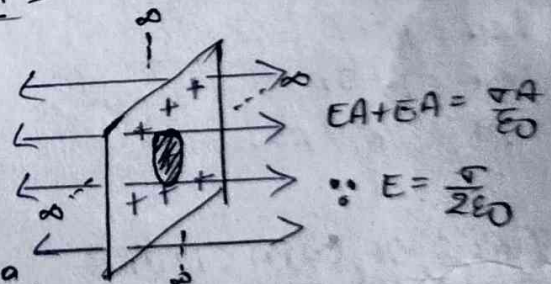 ∞
∞
+
+
+
EA+EA = σA/ε0
∞
+ + +
∴ E = σ/2ε0
∞
a